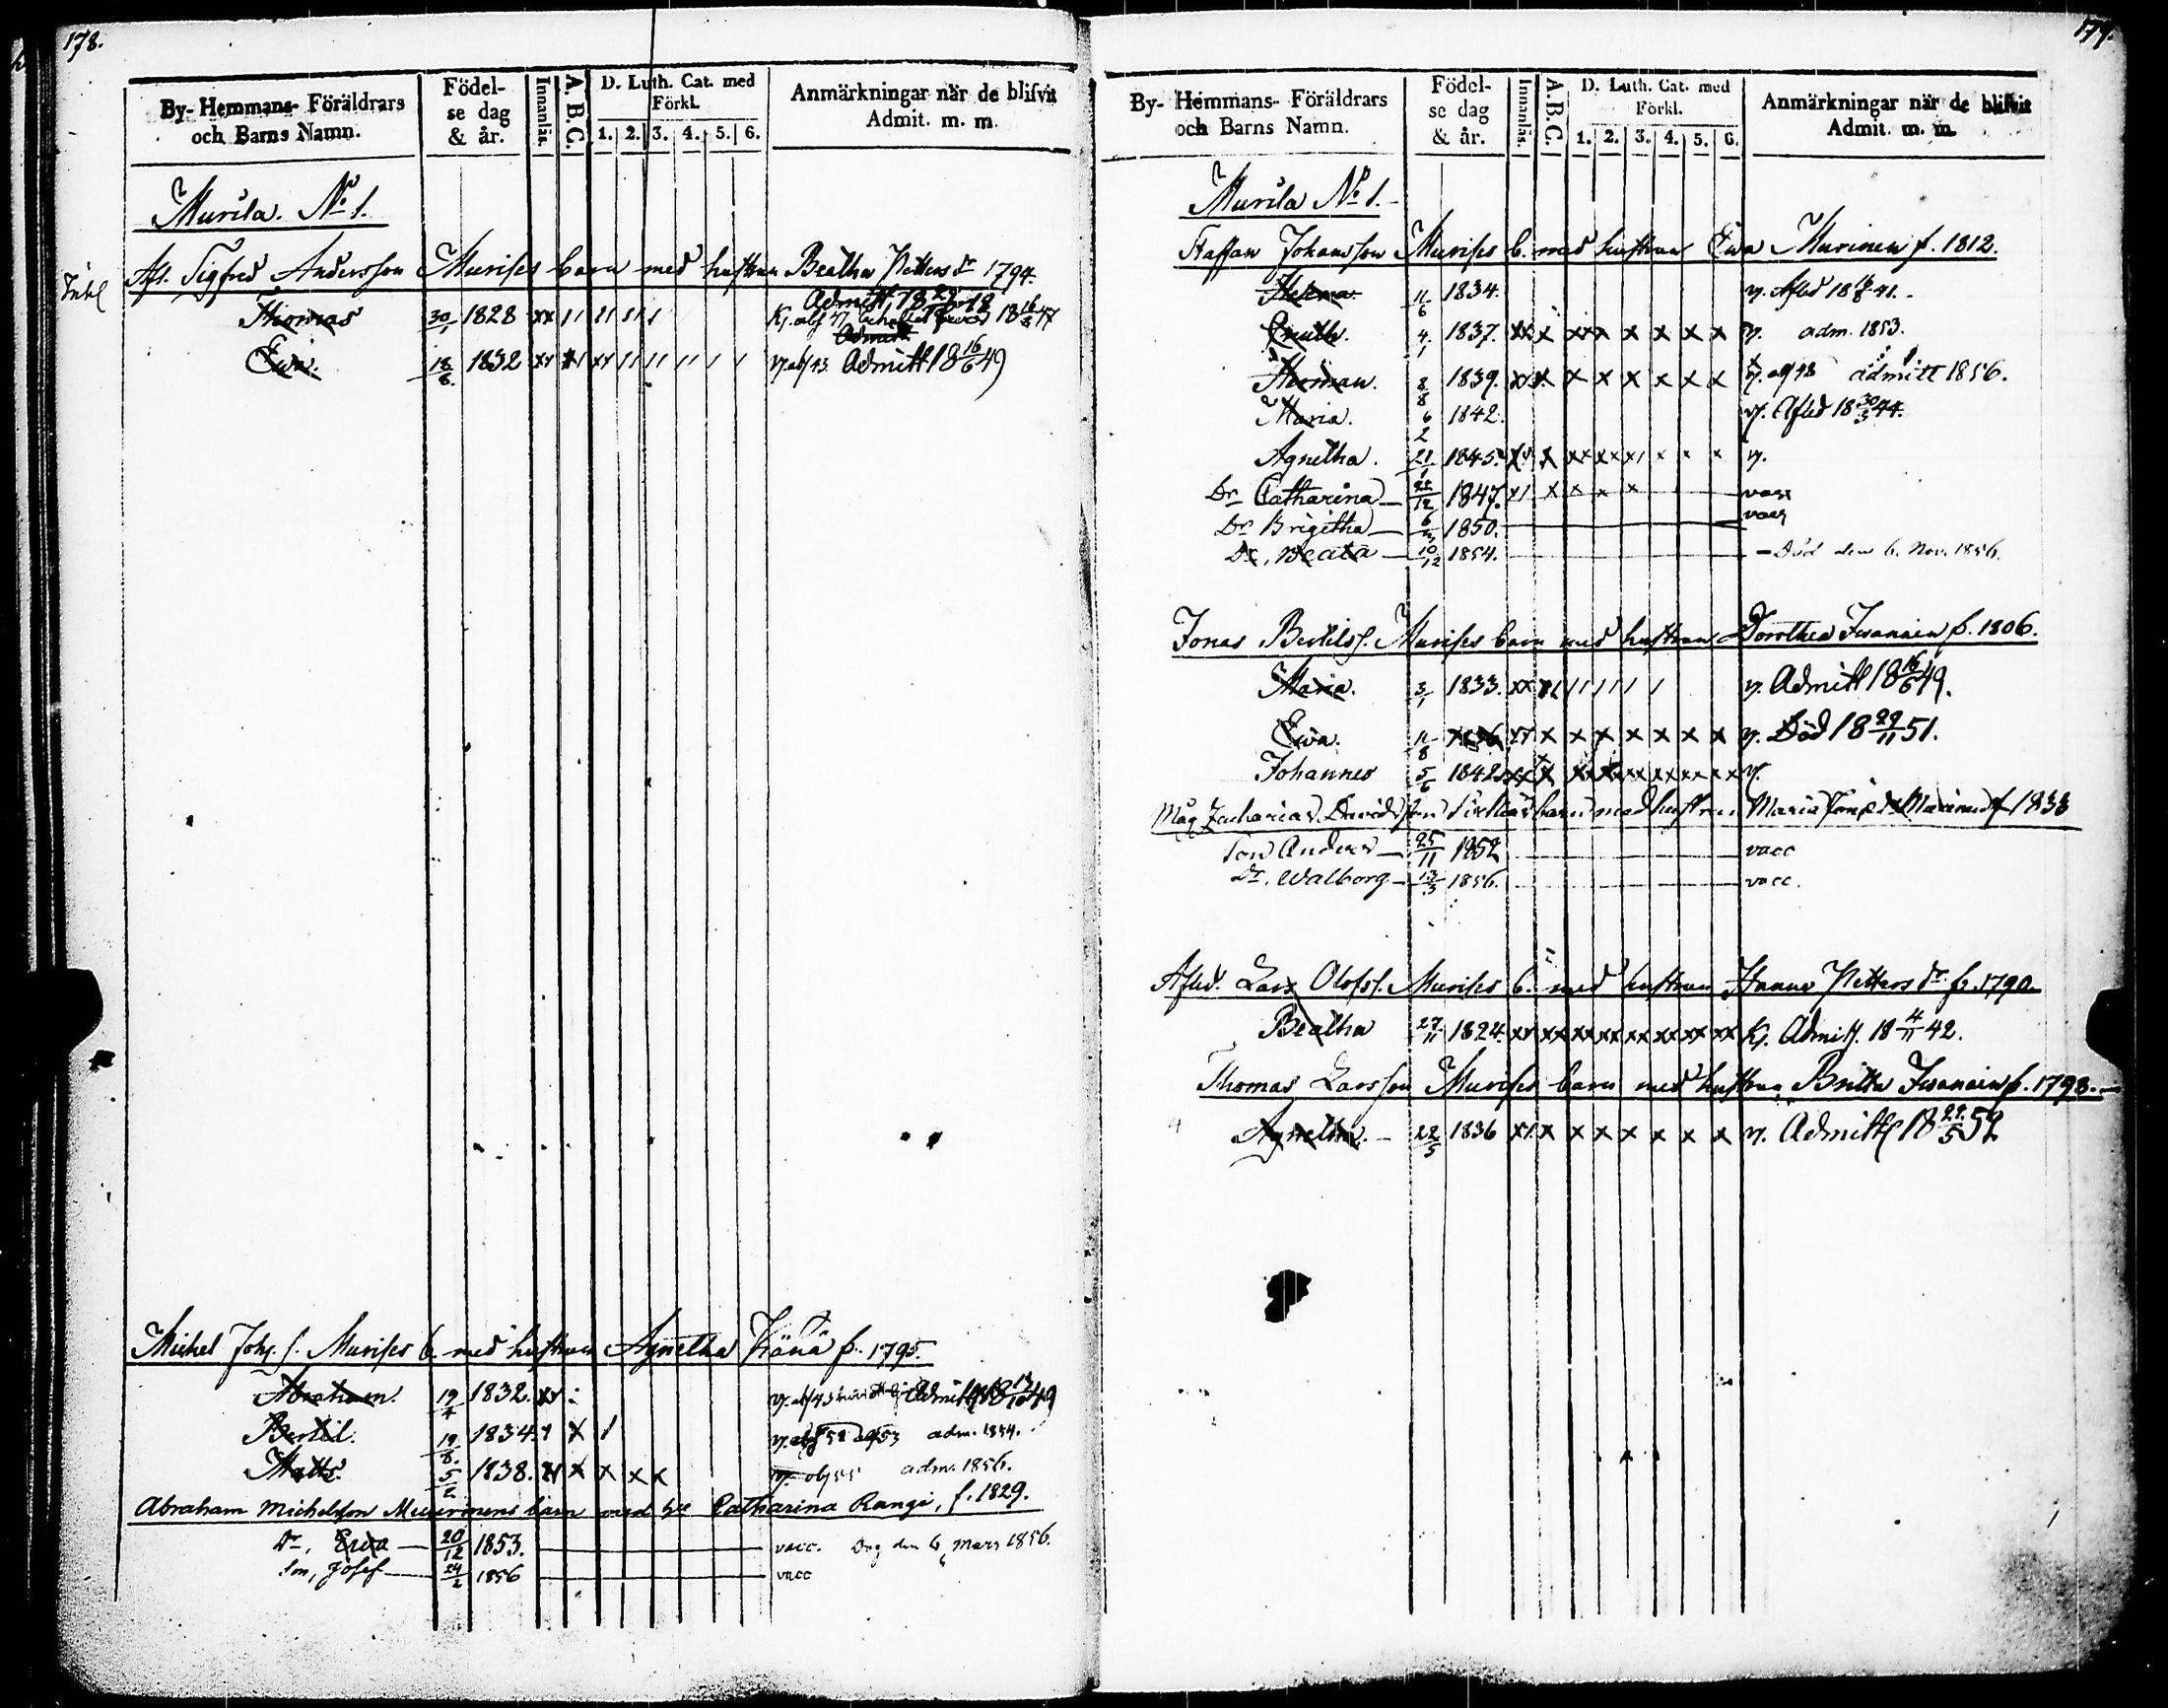 178.
By- Hemmans- Föräldrars och Barns Namn.
Födelse dag & år.
Innanläs.
A. B. C.
D. Luth. Cat. med Förkl.
1. 2. 3. 4. 5. 6.
Anmärkningar när de blifvit Admit. m. m.
Murila. No 1.
Afl. Sigfred Andersson Murises barn med hustrun Beatha Petters dr 1794.
Thomas 30/1 1828 xx
Ewa. 18/8. 1832 Admitt 18 16/6 49
Michel Joh. s. Murises b. med hustrun Agnetha f. 1795.
Abraham. 19/4 1832. xx
Bertil. 19/8. 1834. x adm. 1854.
Matts 5/2 1838. x x x x adm. 1856.
Abraham Michelson Muurinens barn med h. Catharina Rangi, f. 1829.
Dr, Ewa 20/12 1853. vacc. Dog den 6 Mars 1856.
Son, Josef 24/2 1856 vacc
179.
By- Hemmans- Föräldrars och Barns Namn.
Födelse dag & år.
Innanläs.
A. B. C.
D. Luth. Cat. med Förkl.
1. 2. 3. 4. 5. 6.
Anmärkningar när de blifvit Admit. m. m.
Murila No 1.
Staffan Johansson Murises b. med hustrun Ewa Murinen f. 1812.
Helena 11/6 1834. v. Afled 18 41.
4/1 1837. xx x xx x x x x x v. adm. 1853.
Herman. 8/8 1839. xx x x x x x x v. admitt 1856.
Maria. 6/2 1842. v. Afled 18 30/3 44.
Agnetha. 21/1 1845. x xx xx x x x x v.
Dr Catharina 22/12 1847. x x x x vacc
Dr Brigitha 1850. vacc
Dr, Beata 10/12 1854. Död den 6. Nov. 1856.
Jonas Bertils s. Murises barn med hustrun Dorothea f. 1806.
Maria. 3/1 1833. xx v. Admitt 18 16/6 49.
Ewa. 11/8 x x x x x x x v. Död 18 29/11 51.
Johannes 5/6 1842 xx x xx xx xx xx xx xx v.
Måg Zacharias Davidsson barn med hustrun Maria f 1833
Son Anders 25/11 1852 vacc
Dr. Walborg 13/3 1856. vacc.
Afled. Lars Olofs s. Murises b. med hustrun Hanna Petters dr f. 1790.
Beatha 27/11 1824. xx xx xx xx xx xx xx xx K. Admitt. 18 4/11 42.
Thomas Larsson Murises barn med hustrun Britta f. 1793.
Agnetha. 22/5 1836 x x x x x x x v. Admitt 18 29/5 52